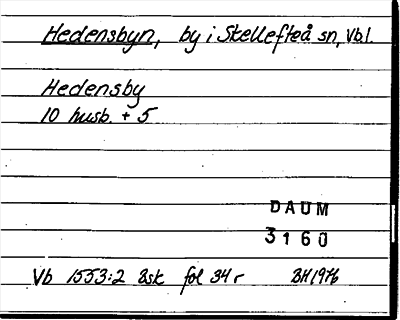 Hedensbyn, by i Skellefteå sn, Vbl.
Hedensby
10 husb. + 5
DAUM
3160
Vb 1553:2 Bsk fol 34r BH 1976